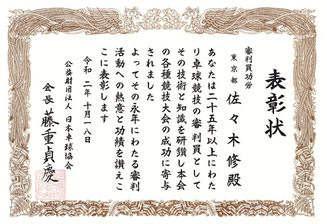 表彰状
審判員功労
東京都 佐々木修殿
あなたは二十五年以上にわた
り卓球競技の審判員として
その技術と知識を研鑽し本会
の各種競技大会の成功に寄与
されました
よってその永年にわたる審判
活動への熱意と功績を讃えこ
こに表彰します
令和二年十月一八日
公益財団法人 日本卓球協会
会長 藤重貞慶